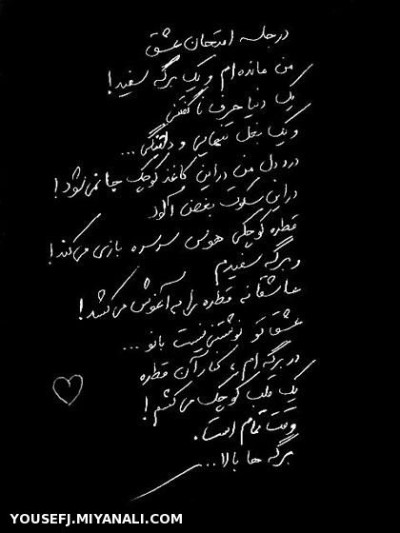 در جلسه امتحان عشق
من مانده‌ام و یک برگه سفید!
یک دنیا حرف نا گفتنی
و یک بغل تنهایی و دلتنگی...
درد دل من در این کاغذ کوچک جا نمی‌شود!
در این سکوت بغض آلود
قطره کوچکی هوس سرسره بازی می‌کند!
و برگه سفیدم
عاشقانه قطره را به آغوش می‌کشد!
عشق تو نوشتنی نیست بانو...
در برگه‌ام، کنار آن قطره
یک قلب کوچک می‌کشم!
وقت تمام است.
برگه ها بالا...
YOUSEFJ.MIYANALI.COM